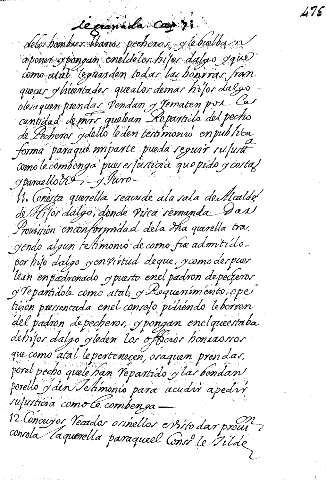 de granada Cap. 7.
476
delos hombres llanos pecheros, y le buelban
aponer y pongan enel delos hijos dalgo y que
como atal le guarden todas las honrras, fran
queças y livertades que alos demas hijos dalgo
o le saquen prendas Vendan y Rematen por las
cantidad de mrs que le an Repartido del pecho
de Pecheros y dello leden testimonio en publica
forma para que mi parte pueda seguir su justa
como le combenga pues es justicia que pido y costas
y para ello &c. y Juro
11. Con esta querella se acude ala sala de Alcaldes
de Hijos dalgo, donde vista se manda dar
Provision en conformidad de la dha querella tra
yendo algun testimonio de como fue admitido
por hijo dalgo y en virtud de que, y como despues
le an empadronado y puesto en el padron de pecheros
y Repartidole como atal, y Requerimiento, o pe
tizion presentada en el consejo pidiendo le borren
del padron de pecheros, y pongan en el que estaba
de hijos dalgo y leden los officios honrrosos
que como atal le pertenezen, o saquen prendas,
por el pecho que le han Repartido y las bendan
por ello y den testimonio para acudir a pedir
su justicia como le combenga
12. Con cuyos Recados o sin ellos es visto dar provi
con sola la querella para que el Conso le tilde